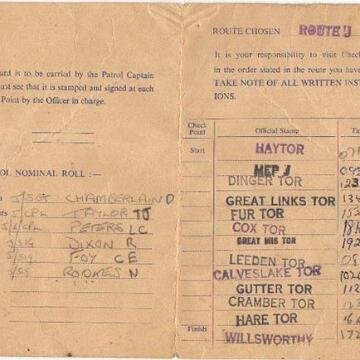 ard is to be carried by the Patrol Captain
ust see that it is stamped and signed at each
Point by the Officer in charge.
OL NOMINAL ROLL :—
J/SGT CHAMBERLAIN D
J/CPL TAYLOR
PETERS L C
DIXON R
J/SIG FOY C E
J/SIG ROOKES N
ROUTE CHOSEN ROUTE J
It is your responsibility to visit Check
in the order stated in the route you have
TAKE NOTE OF ALL WRITTEN INST
IONS.
Check Point Official Stamp
Start HAYTOR
MEP J
DINGER TOR
GREAT LINKS TOR
FUR TOR
COX TOR
GREAT MIS TOR
LEEDEN TOR
CALVESLAKE TOR
GUTTER TOR
CRAMBER TOR
HARE TOR
Finish WILLSWORTHY